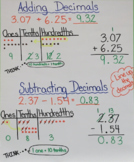 Adding Decimals
3.07 + 6.25 = 9.32
Ones Tenths Hundredths
3.07
+ 6.25
9.32
9 3 2
THINK
Subtracting Decimals
2.37 - 1.54 = 0.83
Ones Tenths Hundredths
1 13
2.37
- 1.54
0.83
0 8 3
THINK
1 one = 10 tenths